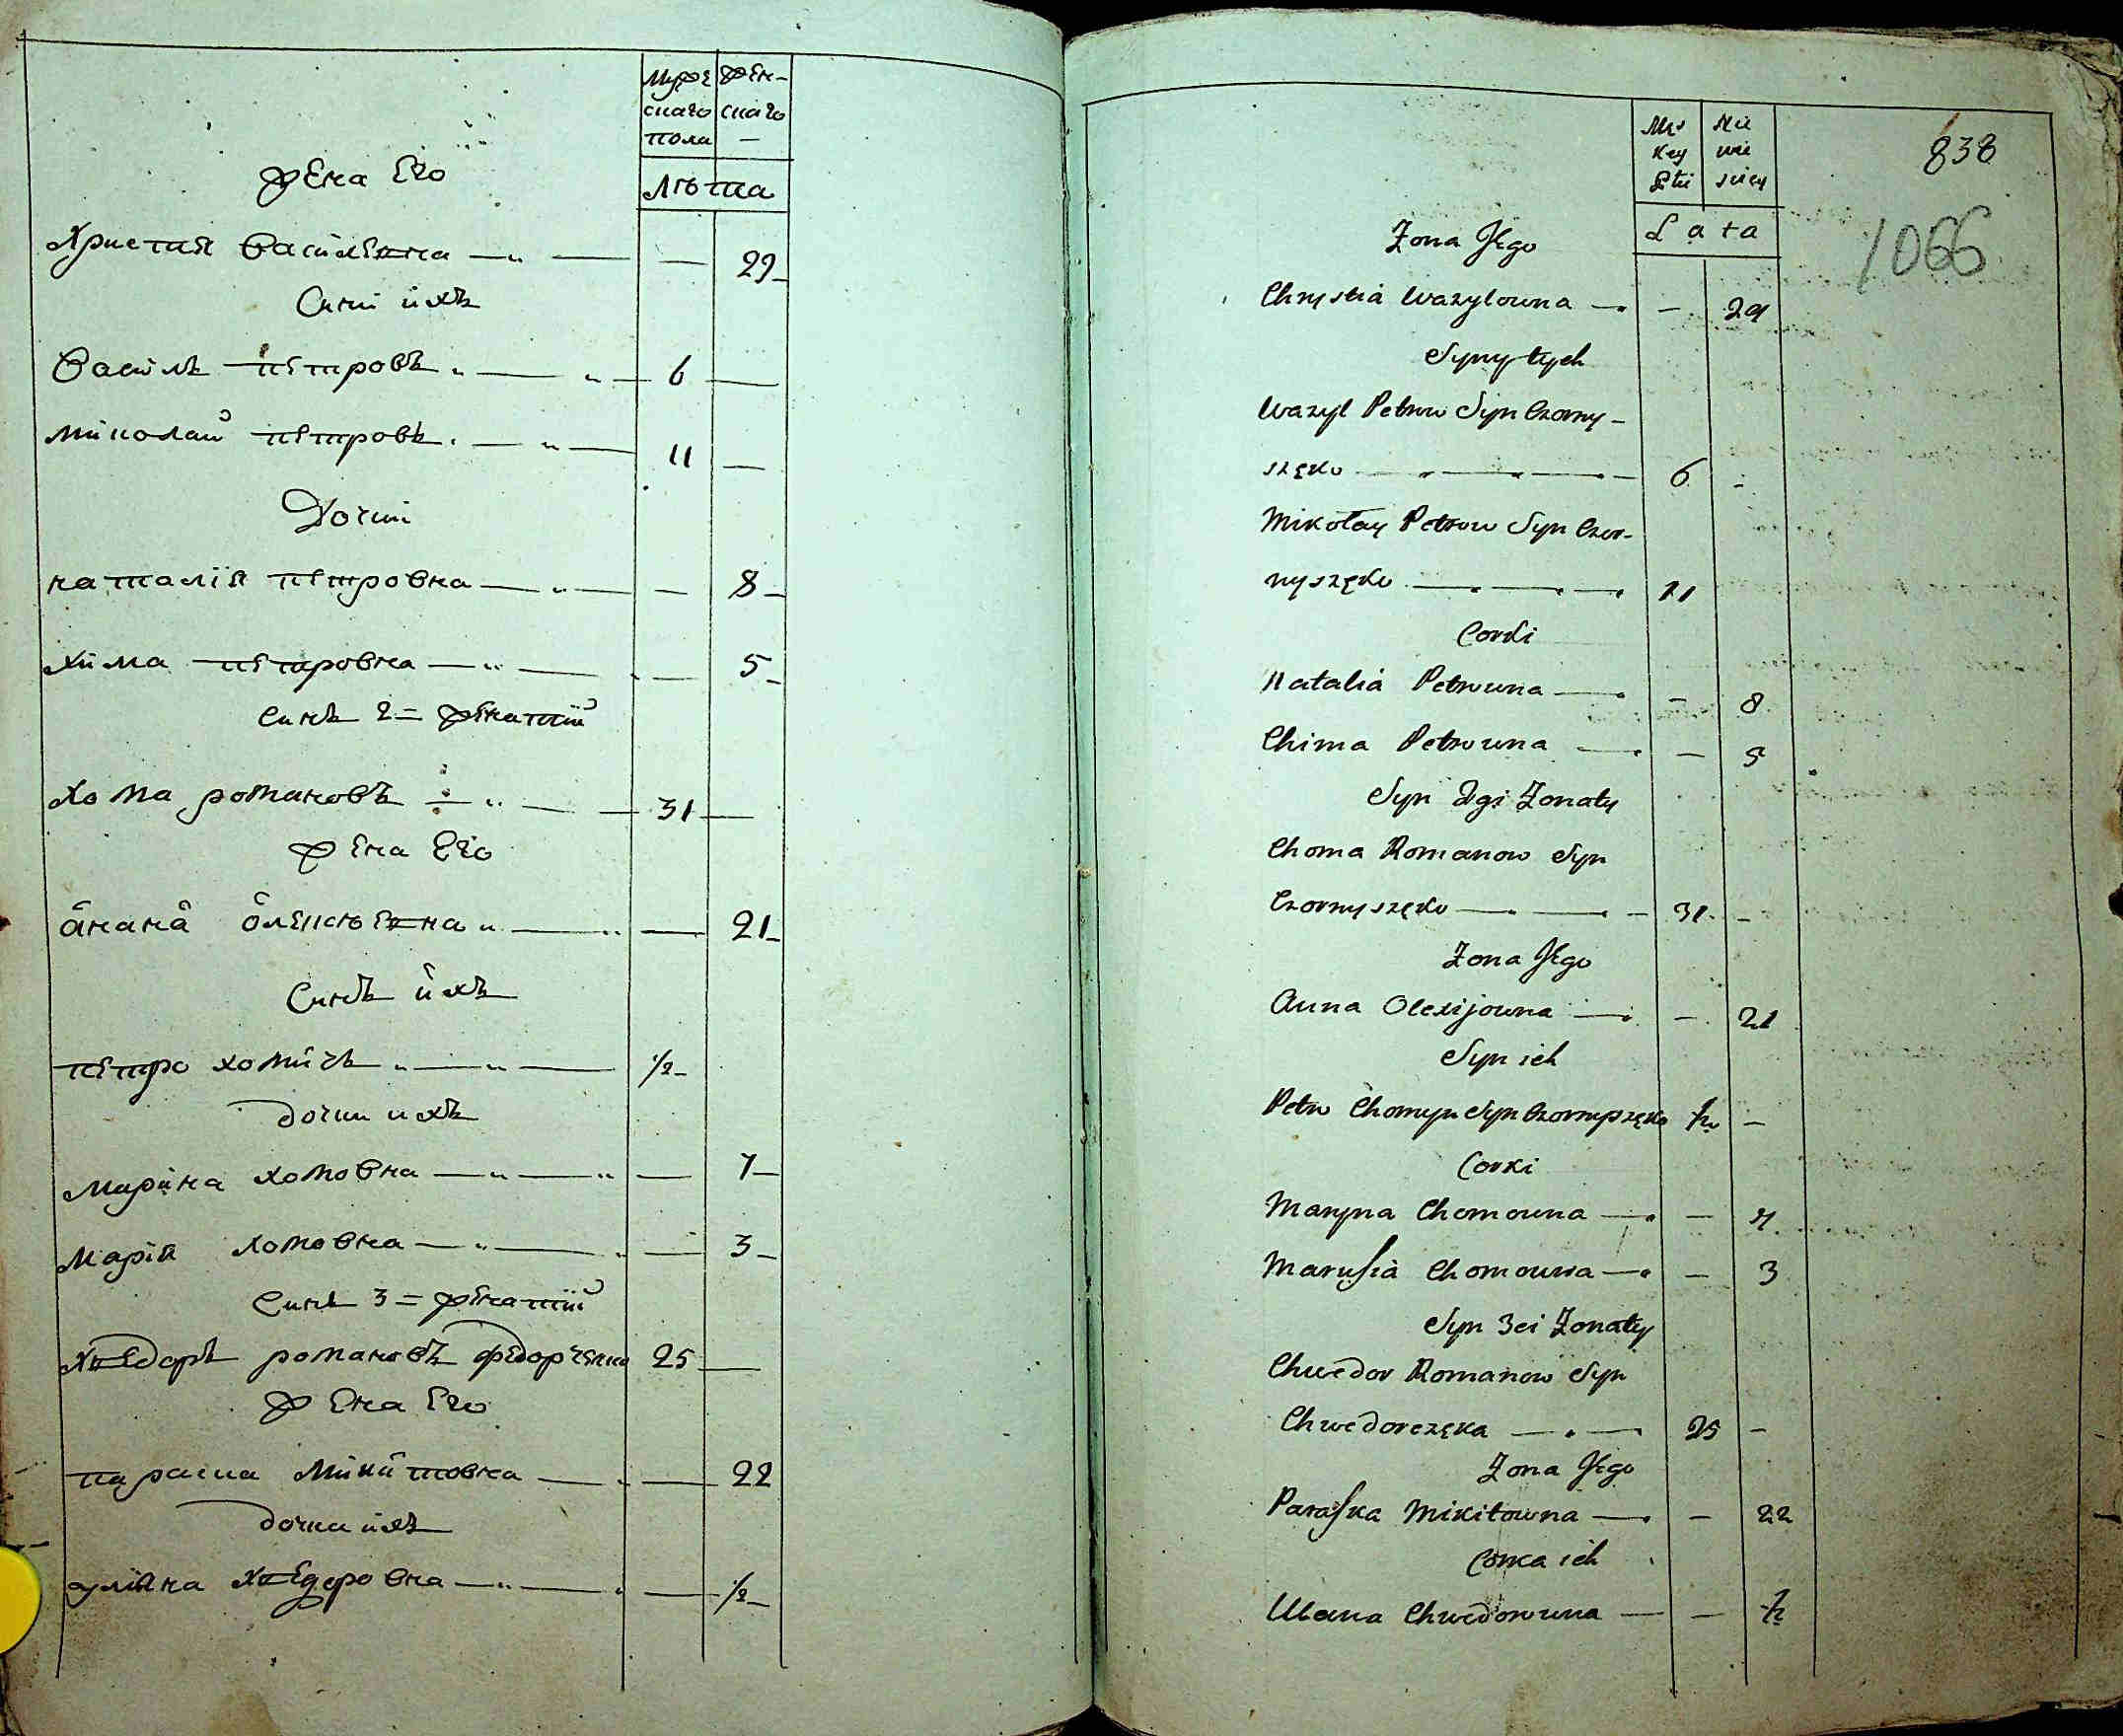 Мужескаго пола
Женскаго
—
Лѣта
Жена Его
Христия Василевна — — 29
Сини ихъ
Василь Петровъ — 6 —
Миколай Петровъ — 11 —
Дочки
Наталія Петровна — — 8
Хима Петровна — — 5
Синъ 2 = Женатий
Хома Романовъ — 31 —
Жена Его
Анана Олексѣевна — — 21
Синъ ихъ
Петро Хомичъ — 1/2
Дочки ихъ
Марина Хомовна — — 7
Марія Хомовна — — 3
Синъ 3 = Женатий
Хведоръ Романовъ Федорченко 25 —
Жена Его
Параска Микитовна — — 22
Дочка ихъ
Уляна Хведоровна — — 1/2
838
1066
Lata
Żona Jego
Chrystia Wazylowna — — 29
Syny tych
Wazyl Petrow Syn Czorny-
szęko — 6 -
Mikołay Petrow Syn Czor-
nyszęko — 11
Corki
Natalia Petrowna — - 8
Chima Petrowna — - 5
Syn 2gi Żonaty
Choma Romanow Syn
Czornyszęko — 31 -
Żona Jego
Anna Olexijowna — - 21
Syn ich
Petro Chomyn Syn Czornyszęko 1/2 -
Corki
Maryna Chomowna — - 7
Marusia Chomowna — - 3
Syn 3ci Żonaty
Chwedor Romanow Syn
Chwedorczęka — 25 -
Żona Jego
Paraska Mikitowna — - 22
Corka ich
Ulana Chwedorowna — - 1/2